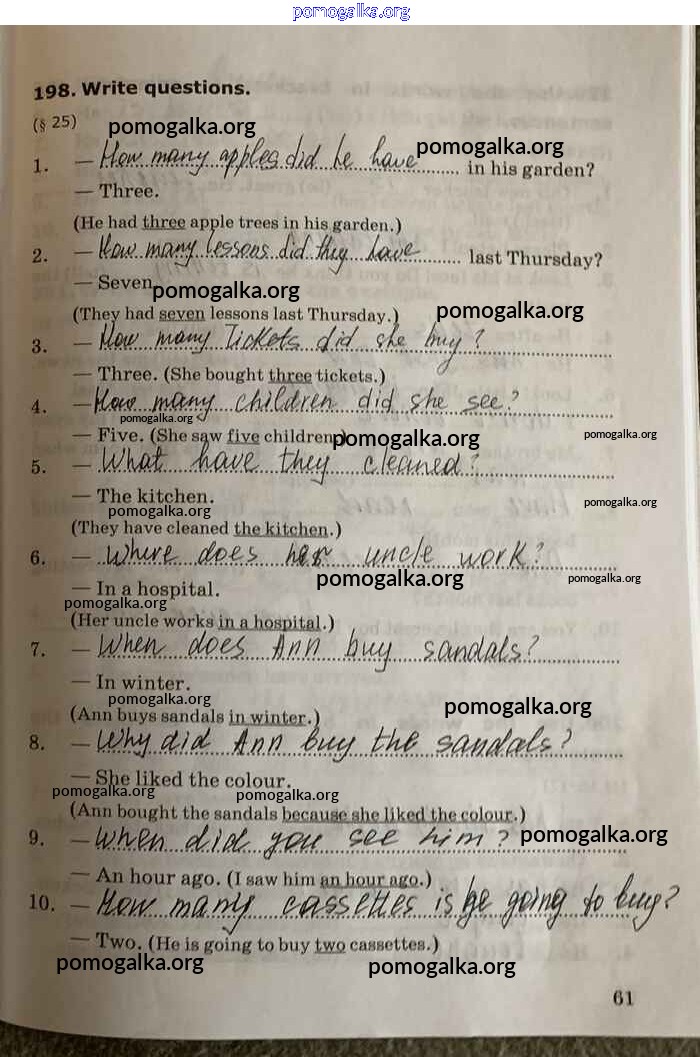 pomogalka.org
198. Write questions.
(§ 25)
pomogalka.org
pomogalka.org
1. — How many apples did he have in his garden?
— Three.
(He had three apple trees in his garden.)
2. — How many lessons did they have last Thursday?
— Seven
pomogalka.org
(They had seven lessons last Thursday.)
pomogalka.org
3. — How many tickets did she buy?
— Three. (She bought three tickets.)
4. — How many children did she see?
pomogalka.org
— Five. (She saw five children.)
pomogalka.org
pomogalka.org
5. — What have they cleaned?
— The kitchen.
pomogalka.org
pomogalka.org
(They have cleaned the kitchen.)
6. — Where does her uncle work?
pomogalka.org
pomogalka.org
— In a hospital.
pomogalka.org
(Her uncle works in a hospital.)
7. — When does Ann buy sandals?
— In winter.
pomogalka.org
pomogalka.org
(Ann buys sandals in winter.)
8. — Why did Ann buy the sandals?
— She liked the colour.
pomogalka.org
pomogalka.org
(Ann bought the sandals because she liked the colour.)
9. — When did you see him?
pomogalka.org
— An hour ago. (I saw him an hour ago.)
10. — How many cassettes is he going to buy?
— Two. (He is going to buy two cassettes.)
pomogalka.org
pomogalka.org
61